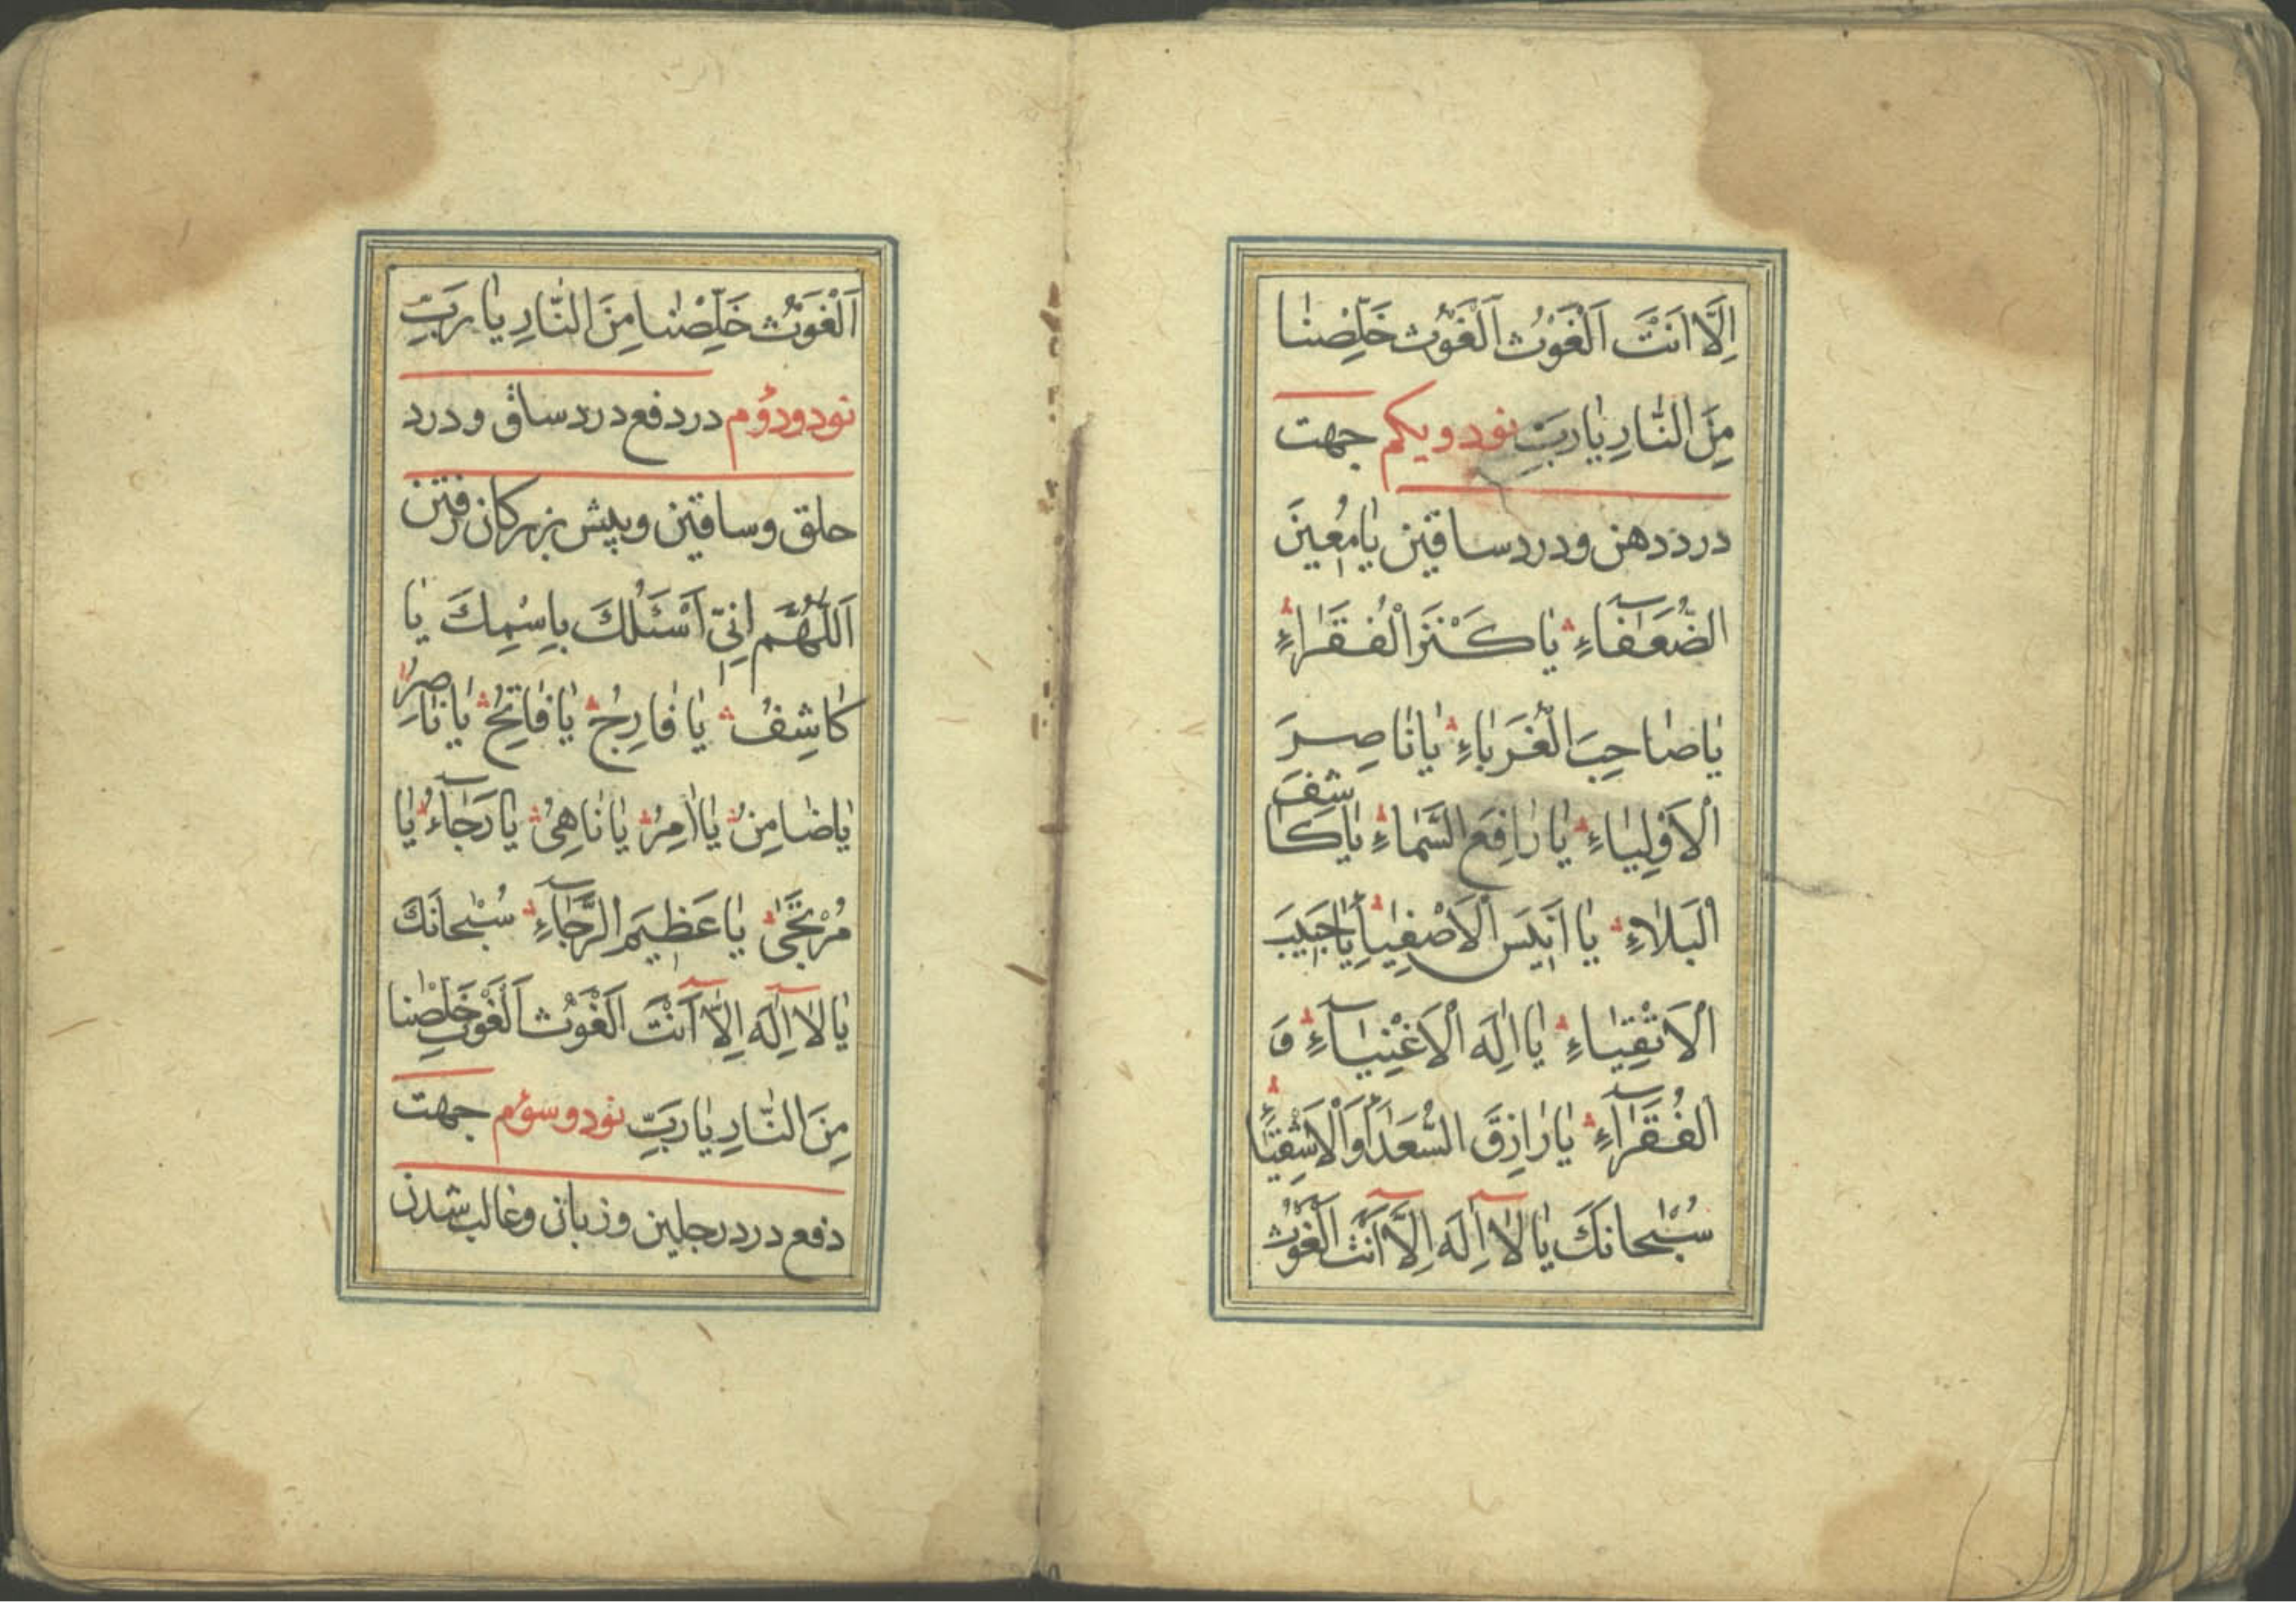 اِلَّا اَنْتَ اَلْغَوْثَ اَلْغَوْثَ خَلِّصْنٰا
مِنَ النّٰارِ يٰا رَبِّ نود و يكم جهت
درد دهن و درد ساقين يٰا مُعينَ
الضُّعَفٰاءِ يٰا كَنْزَ الْفُقَرٰاءِ
يٰا صٰاحِبَ الْغُرَبٰاءِ يٰا نٰاصِرَ
الْاَوْلِيٰاءِ يٰا رٰافِعَ السَّمٰاءِ يٰا كٰاشِفَ
الْبَلٰاءِ يٰا اَنيسَ الْاَصْفِيٰاءِ يٰا حَبيبَ
الْاَتْقِيٰاءِ يٰا اِلٰهَ الْاَغْنِيٰآءِ وَ
الْفُقَرٰآءِ يٰا رٰازِقَ السُّعَدٰاءِ وَالْاَشْقِيٰاءِ
سُبْحٰانَكَ يٰا لٰا اِلٰهَ اِلَّا اَنْتَ الْغَوْثَ
اَلْغَوْثَ خَلِّصْنٰا مِنَ النّٰارِ يٰا رَبِّ
نود و دوُم در دفع درد ساق و درد
حلق و ساقين و پيش بزركان رفتن
اَللّٰهُمَّ اِنّي اَسْئَلُكَ بِاسْمِكَ يٰا
كٰاشِفُ يٰا فٰارِجُ يٰا فٰاتِحُ يٰا نٰاصِرُ
يٰا ضٰامِنُ يٰا اٰمِرُ يٰا نٰاهِىُ يٰا رَجٰآءُ يٰا
مُرْتَجٰى يٰا عَظيمَ الرَّجٰآءِ سُبْحٰانَكَ
يٰا لٰا اِلٰهَ اِلَّا اَنْتَ اَلْغَوْثَ اَلْغَوْثَ خَلِّصْنٰا
مِنَ النّٰارِ يٰا رَبِّ نود و سوُم جهت
دفع درد رجلين و زبانى و غالب شدن